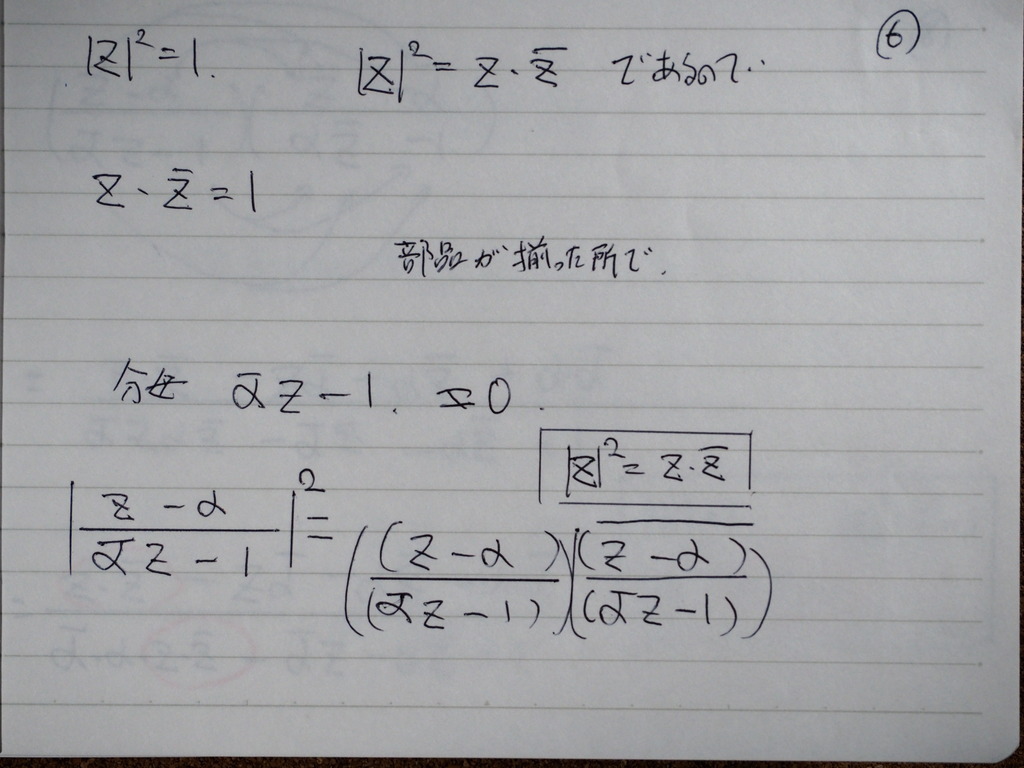 ⑥
|z|²=1. |z|²= z・z̅ であるので..
z・z̅ =1
部品が揃った所で.
分母 α̅z−1. ≠0.
|z|²= z・z̅
|(z−α)/(α̅z−1)|²= ((z−α)/(α̅z−1)) \overline{((z−α)/(α̅z−1))}